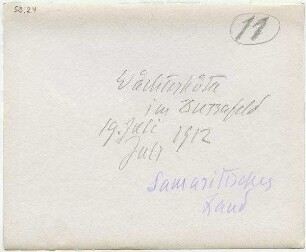 58.24
11
Wächterhütte
im Durrafeld
19. Juli 1912
Juli
Samaritisches
Land